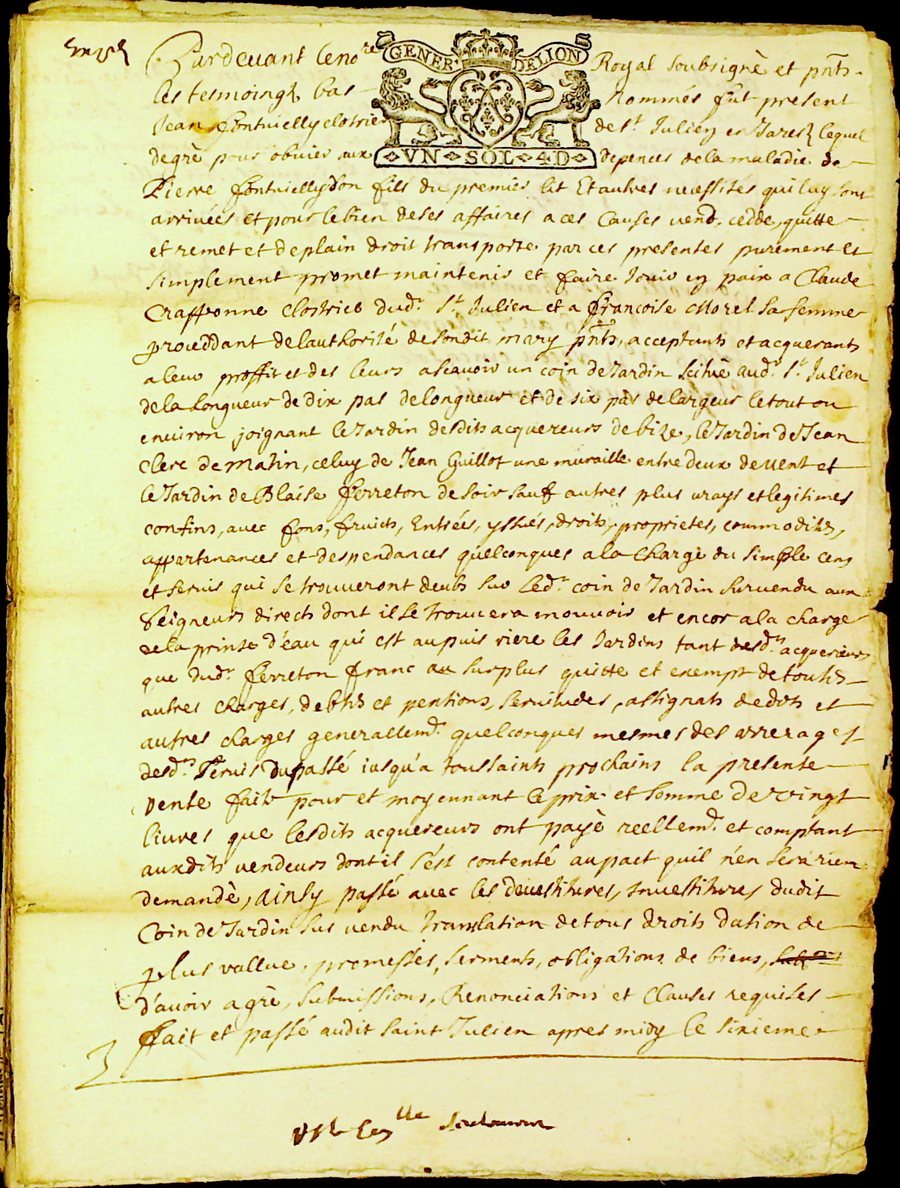 GENER. DE LION
Pardevant le no.re Royal soubsigné et pnts
les tesmoings bas nommés fut present
Jean fontvielly clostrier de St. Julien en Jarest lequel
de gré pour obvier aux depences de la maladie de
VN SOL 4 D
Pierre fontvielly son fils du premier lit Et autres necessités qui luy sont
arrivées et pour le bien de ses affaires a ces Causes vend, cedde, quitte
et remet et de plain droit transporte par ces presentes purement et
simplement promet maintenir et faire Jouir en paix a Claude
Crapponne clostrier dudt. St. Julien et a françoise Morel sa femme
proceddant de l'authorité de sondit mary pnts, acceptants et acquerants
a leur proffit et des leurs a scavoir un coin de Jardin scitué audt. St. Julien
de la Longueur de dix pas de longueur et de six pas de largeur le tout ou
environ joignant le Jardin desdits acquereurs de bize, le Jardin de Jean
Clerc de matin, celuy de Jean Guillot une muraille entre deux de vent et
le Jardin de Blaise ferreton de soir sauf autres plus vrays et legitimes
confins, avec fons, fruicts, Entrées, yssües, droits, proprietes, commodités,
appartenances et despendances quelconques a la Charge du simple cens
et servis qui se trouveront deubs sur ledt. coin de Jardin survendu aux
Seigneurs directs dont il se trouvera mouvoir et encor a la charge
de la prinse d'eau qui est au puis riere les Jardins tant desdts acquereurs
que dudt. ferreton franc au surplus quitte et exempt de touttes
autres charges, debtes et pentions, servitudes, assignats de dots et
autres charges generallemt. quelconques mesmes des arrerages
desdts. servis du passé iusqu'a toussaints prochains la presente
vente faite pour et moyennant le prix et somme de vingt
livres que lesdits acquereurs ont payé reellemt. et comptant
auxdits vendeurs dont il s'est contenté au pact qu'il n'en sera rien
demandé, ainsy passé avec les devestitures, Investitures dudit
Coin de Jardin sus vendu translation de tous droits dation de
plus vallue, promesses, serments, obligations de biens,
d'avoir agré, submissions, Renonciations et Clauses requises
ffait et passé audit saint Julien apres midy le sixieme